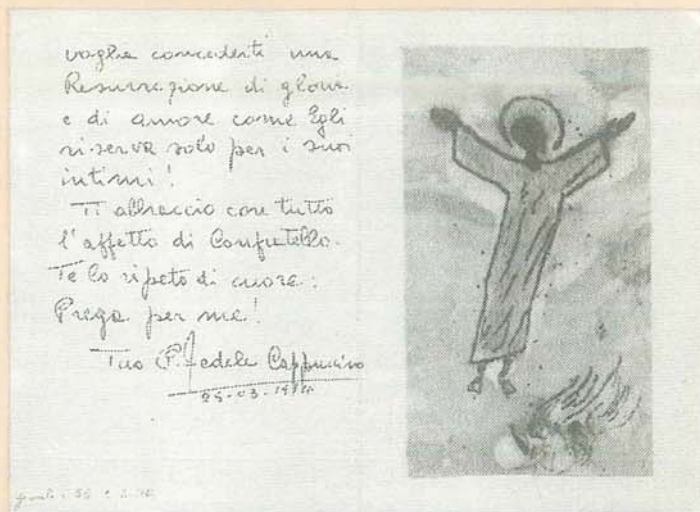 voglia concederti una
Resurrezione di gloria
e di amore come Egli
riserva solo per i suoi
intimi!
Ti abbraccio con tutto
l'affetto di Confratello.
Te lo ripeto di cuore:
Prega per me!
Tuo P. Fedele Cappuccino